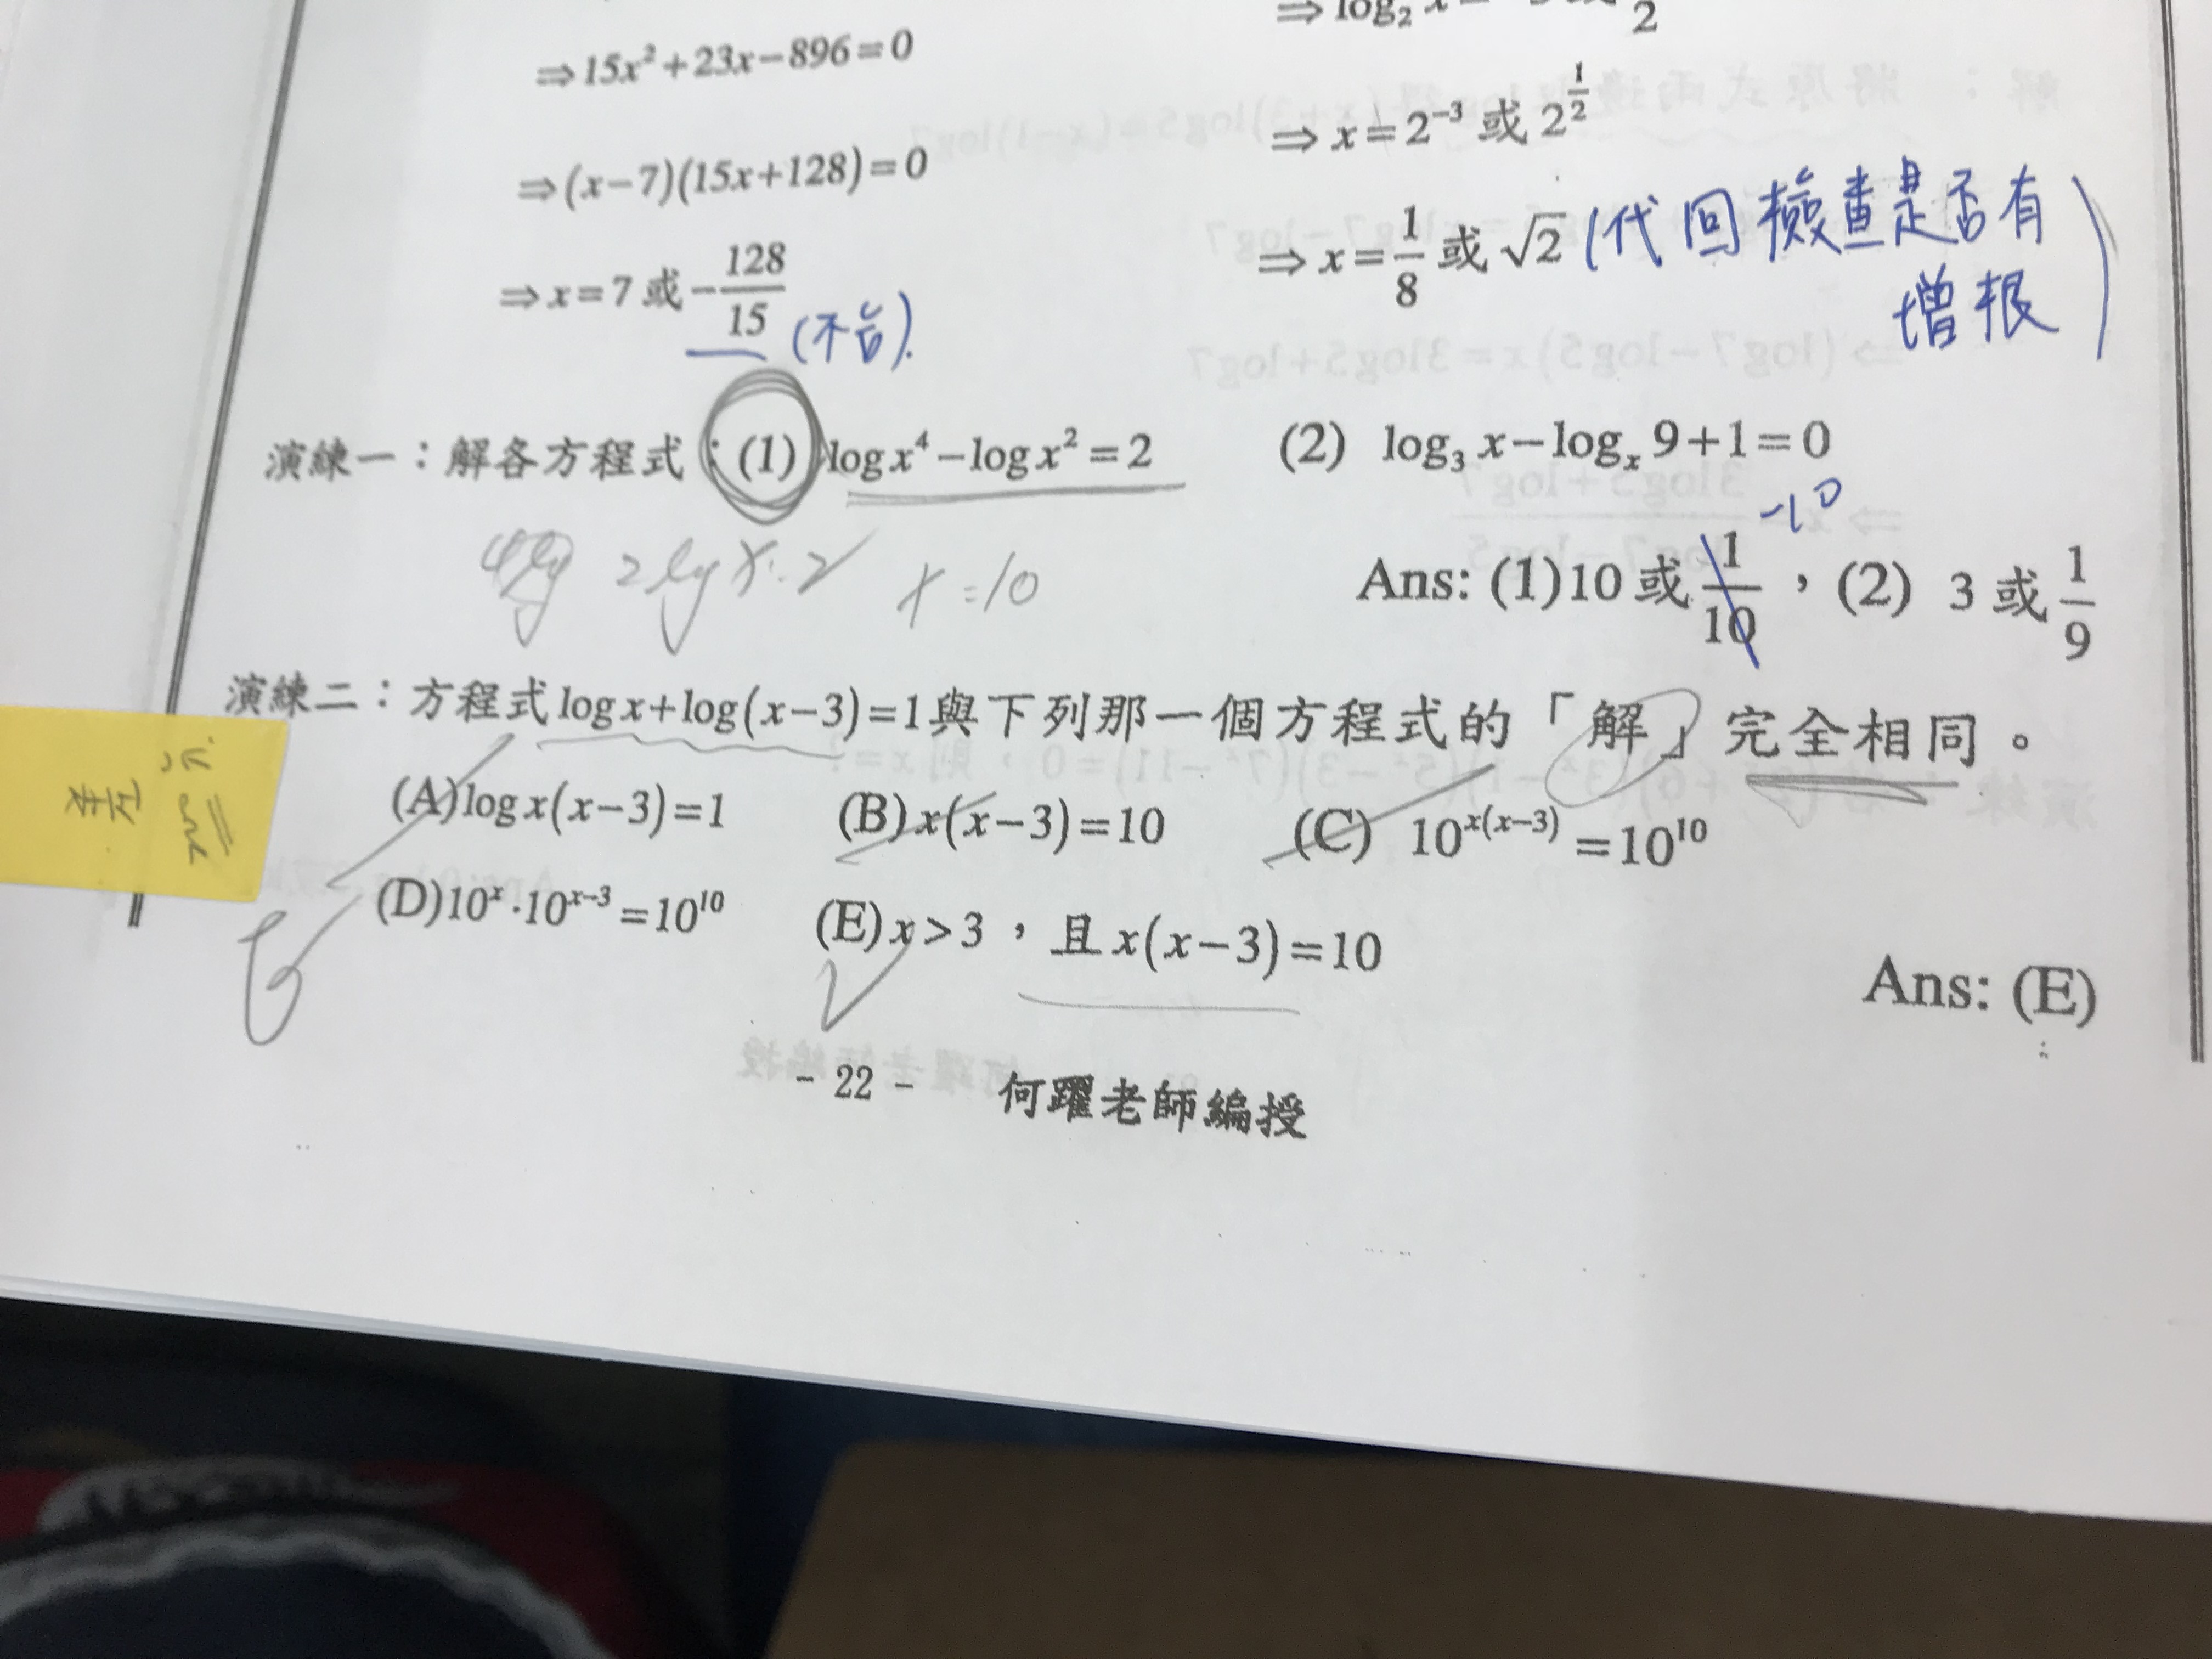 ⇒15x²+23x−896=0
⇒(x−7)(15x+128)=0
⇒x=7或−128/15 (不合).
⇒x=2⁻³或2^(1/2)
⇒x=1/8或√2 (代回檢查是否有增根)
演練一：解各方程式：(1) log x⁴−log x²=2 (2) log₃ x−logₓ 9+1=0
2log x=2 x=10
-10
Ans: (1)10或1/10，(2) 3或1/9
演練二：方程式log x+log(x−3)=1與下列那一個方程式的「解」完全相同。
(A)log x(x−3)=1 (B)x(x−3)=10 (C) 10^(x(x−3))=10¹⁰
(D)10ˣ·10ˣ⁻³=10¹⁰ (E)x>3，且x(x−3)=10
Ans: (E)
- 22 - 何躍老師編授